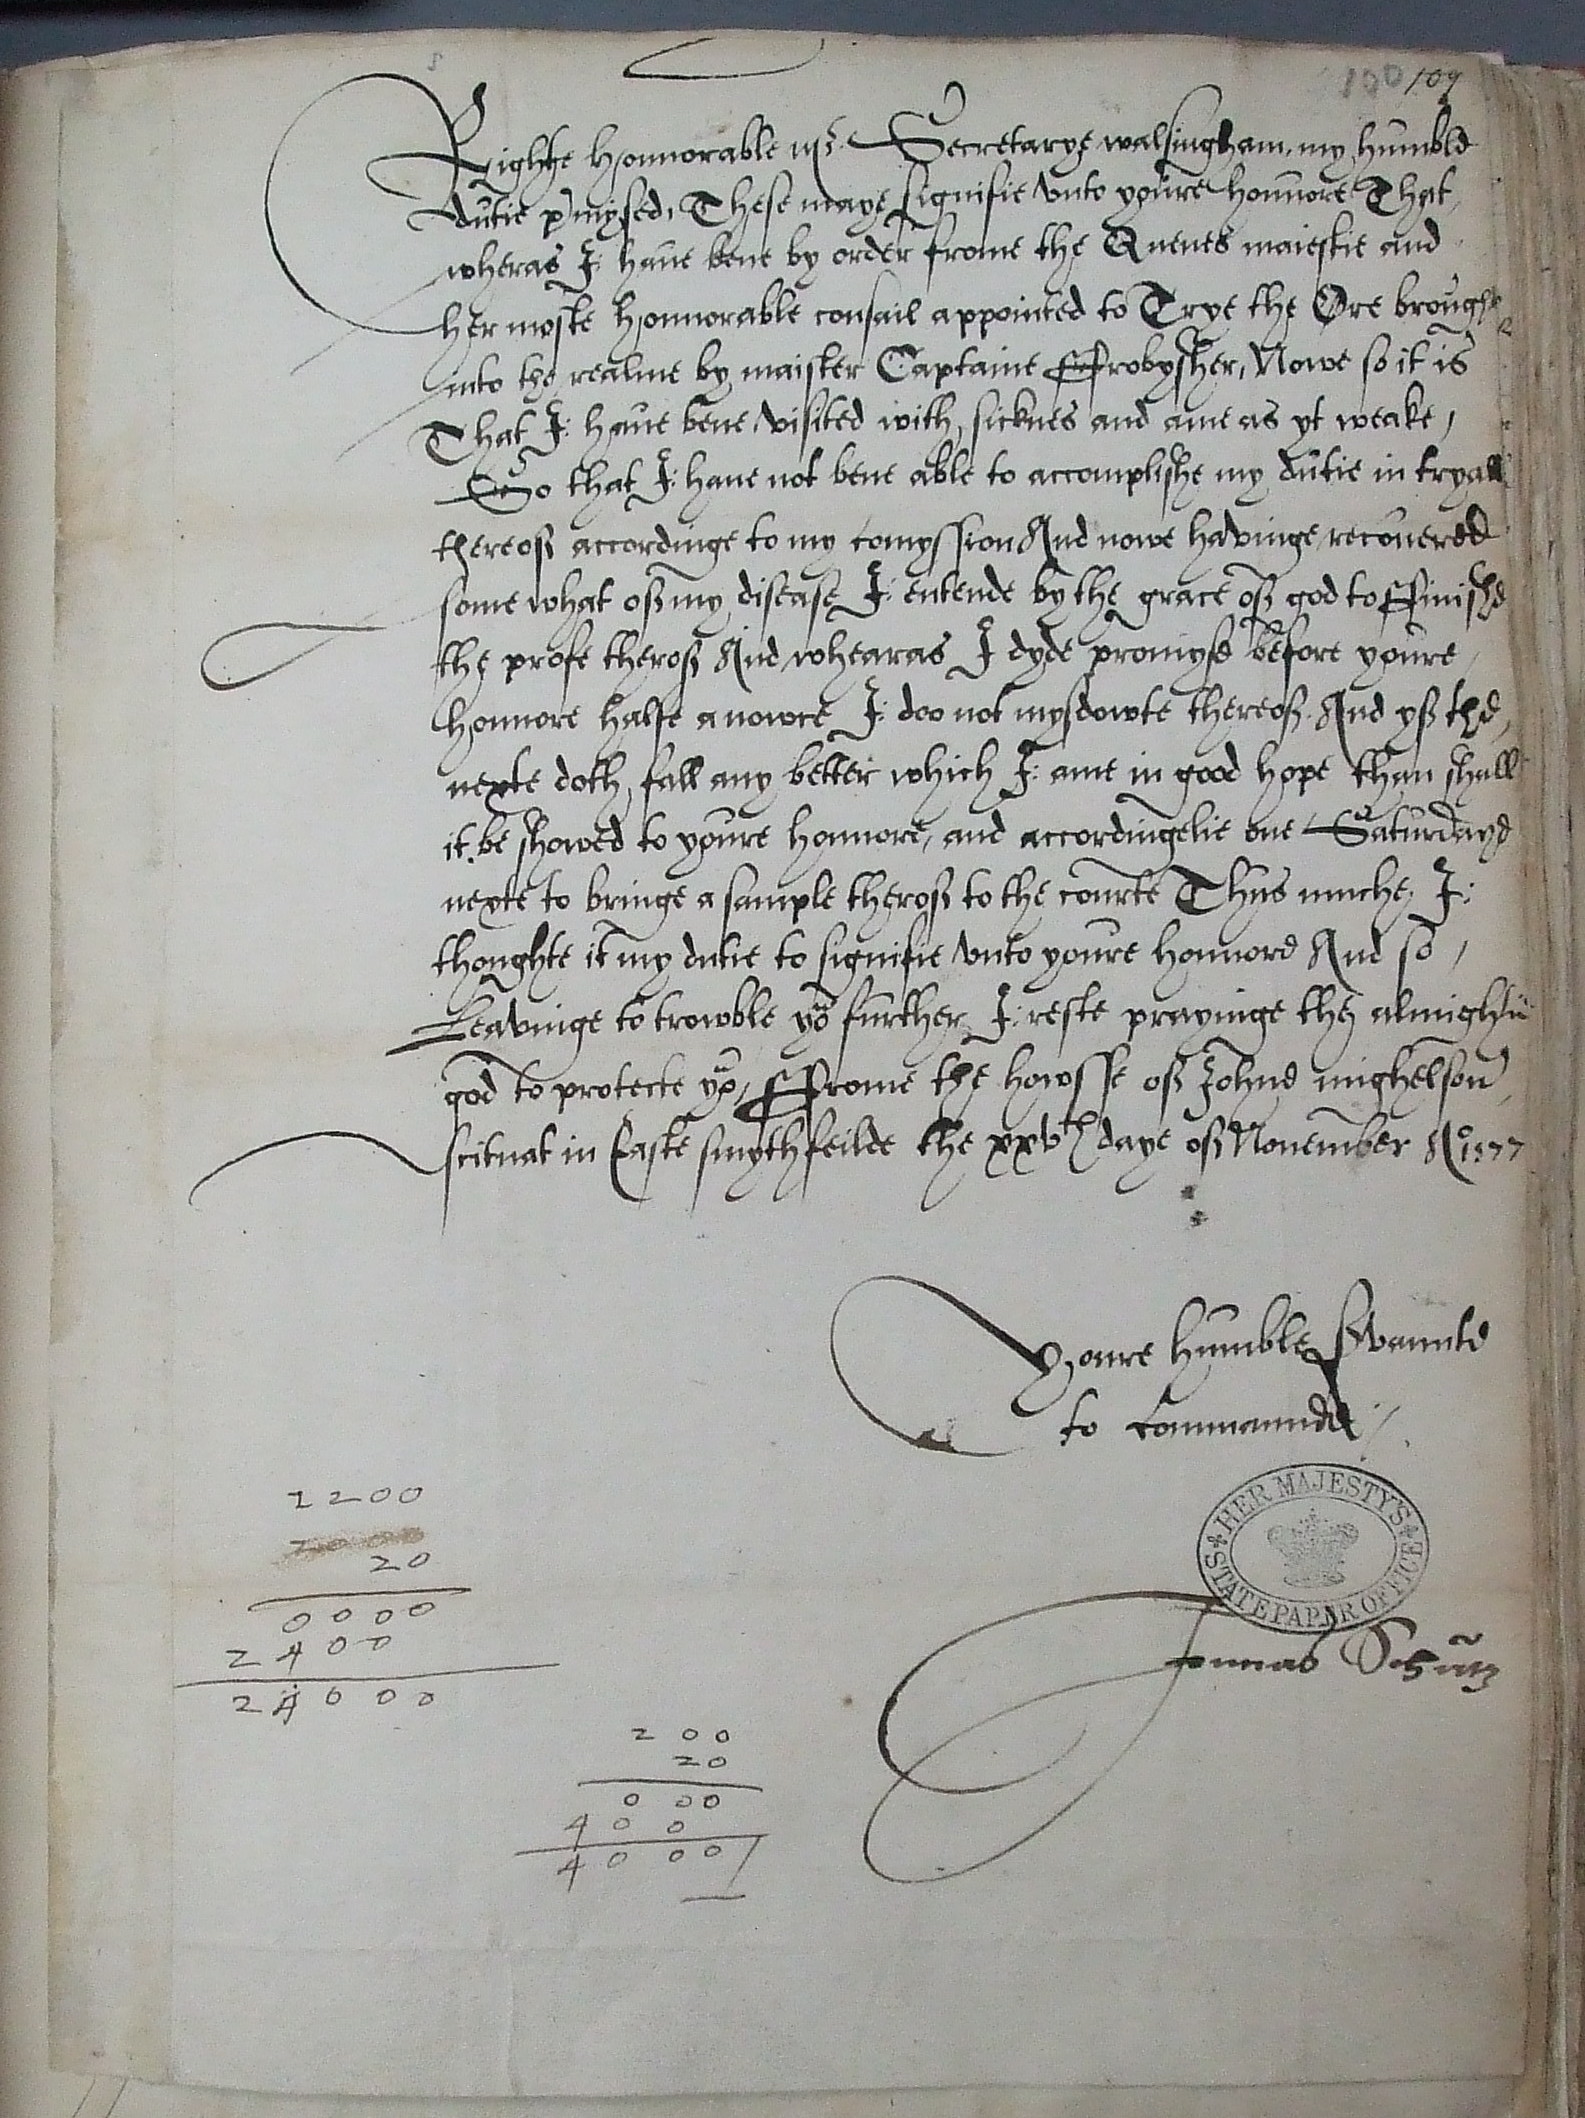 100 109
Righte Honnorable mr Secretarye walsingham, my humble
dutie p'mysed, These maye signifie vnto youre honnore That,
wheras I: haue bene by order frome the Quenes maiestie and
her moste honnorable consail appointed to Trye the Ore brought
into the realme by maister Captaine Ffrobysher, Nowe so it is
That I: haue bene visited with, sicknes and ame as yt weake,
So that I: haue not bene able to accomplishe my dutie in tryall
thereof accordinge to my comyssion And nowe havinge recouered
some what of my disease I: entende by the grace of god to Ffinishe
the profe therof And whearas I dyde promyse before youre,
honnore halfe a nowce I: doo not mysdowte thereof. And yf the,
nexte doth, fall any better which I: ame in good hope than shall
it be showed to youre honnore, and accordingelie one Saturdaye
nexte to bringe a sample therof to the courte Thus muche, I:
thoughte it my dutie to signifie vnto youre honnore And so,
Leavinge to trowble yo further I: reste prayinge the almightii
god to protecte yo, Ffrome the howsse of Johne mighelson,
scituat in Easte smythfeilde the xxvth daye of Nouember Ao 1577
Youre humble Servannte
to commaunde
HER MAJESTY'S
STATE PAPER OFFICE
Jonnas Schutz
1200
20
0000
2400
24000
200
20
000
400
4000